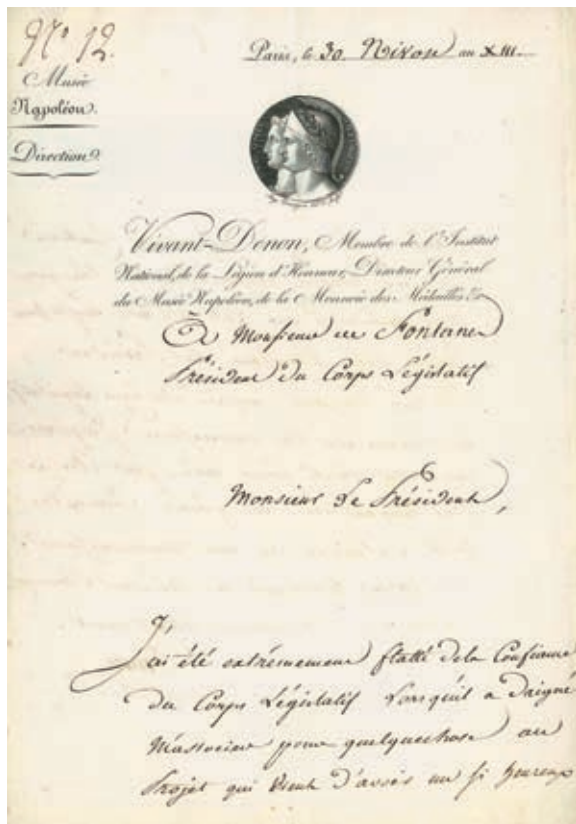 N.º 12.
Paris, le 30. Nivose an XIII.
Musée
Napoléon.
Direction
Vivant-Denon, Membre de l'Institut
National, de la Légion d'Honneur, Directeur Général
du Musée Napoléon, de la Monnoie des Médailles &c
A Monsieur de Fontanes
Président du Corps Législatif
Monsieur Le Président,
J'ai été extrêmement flatté de la Confiance
du Corps Législatif Lorsqu'il a daigné
M'associer pour quelquechose au
Projet qui Vient d'avoir un si heureux